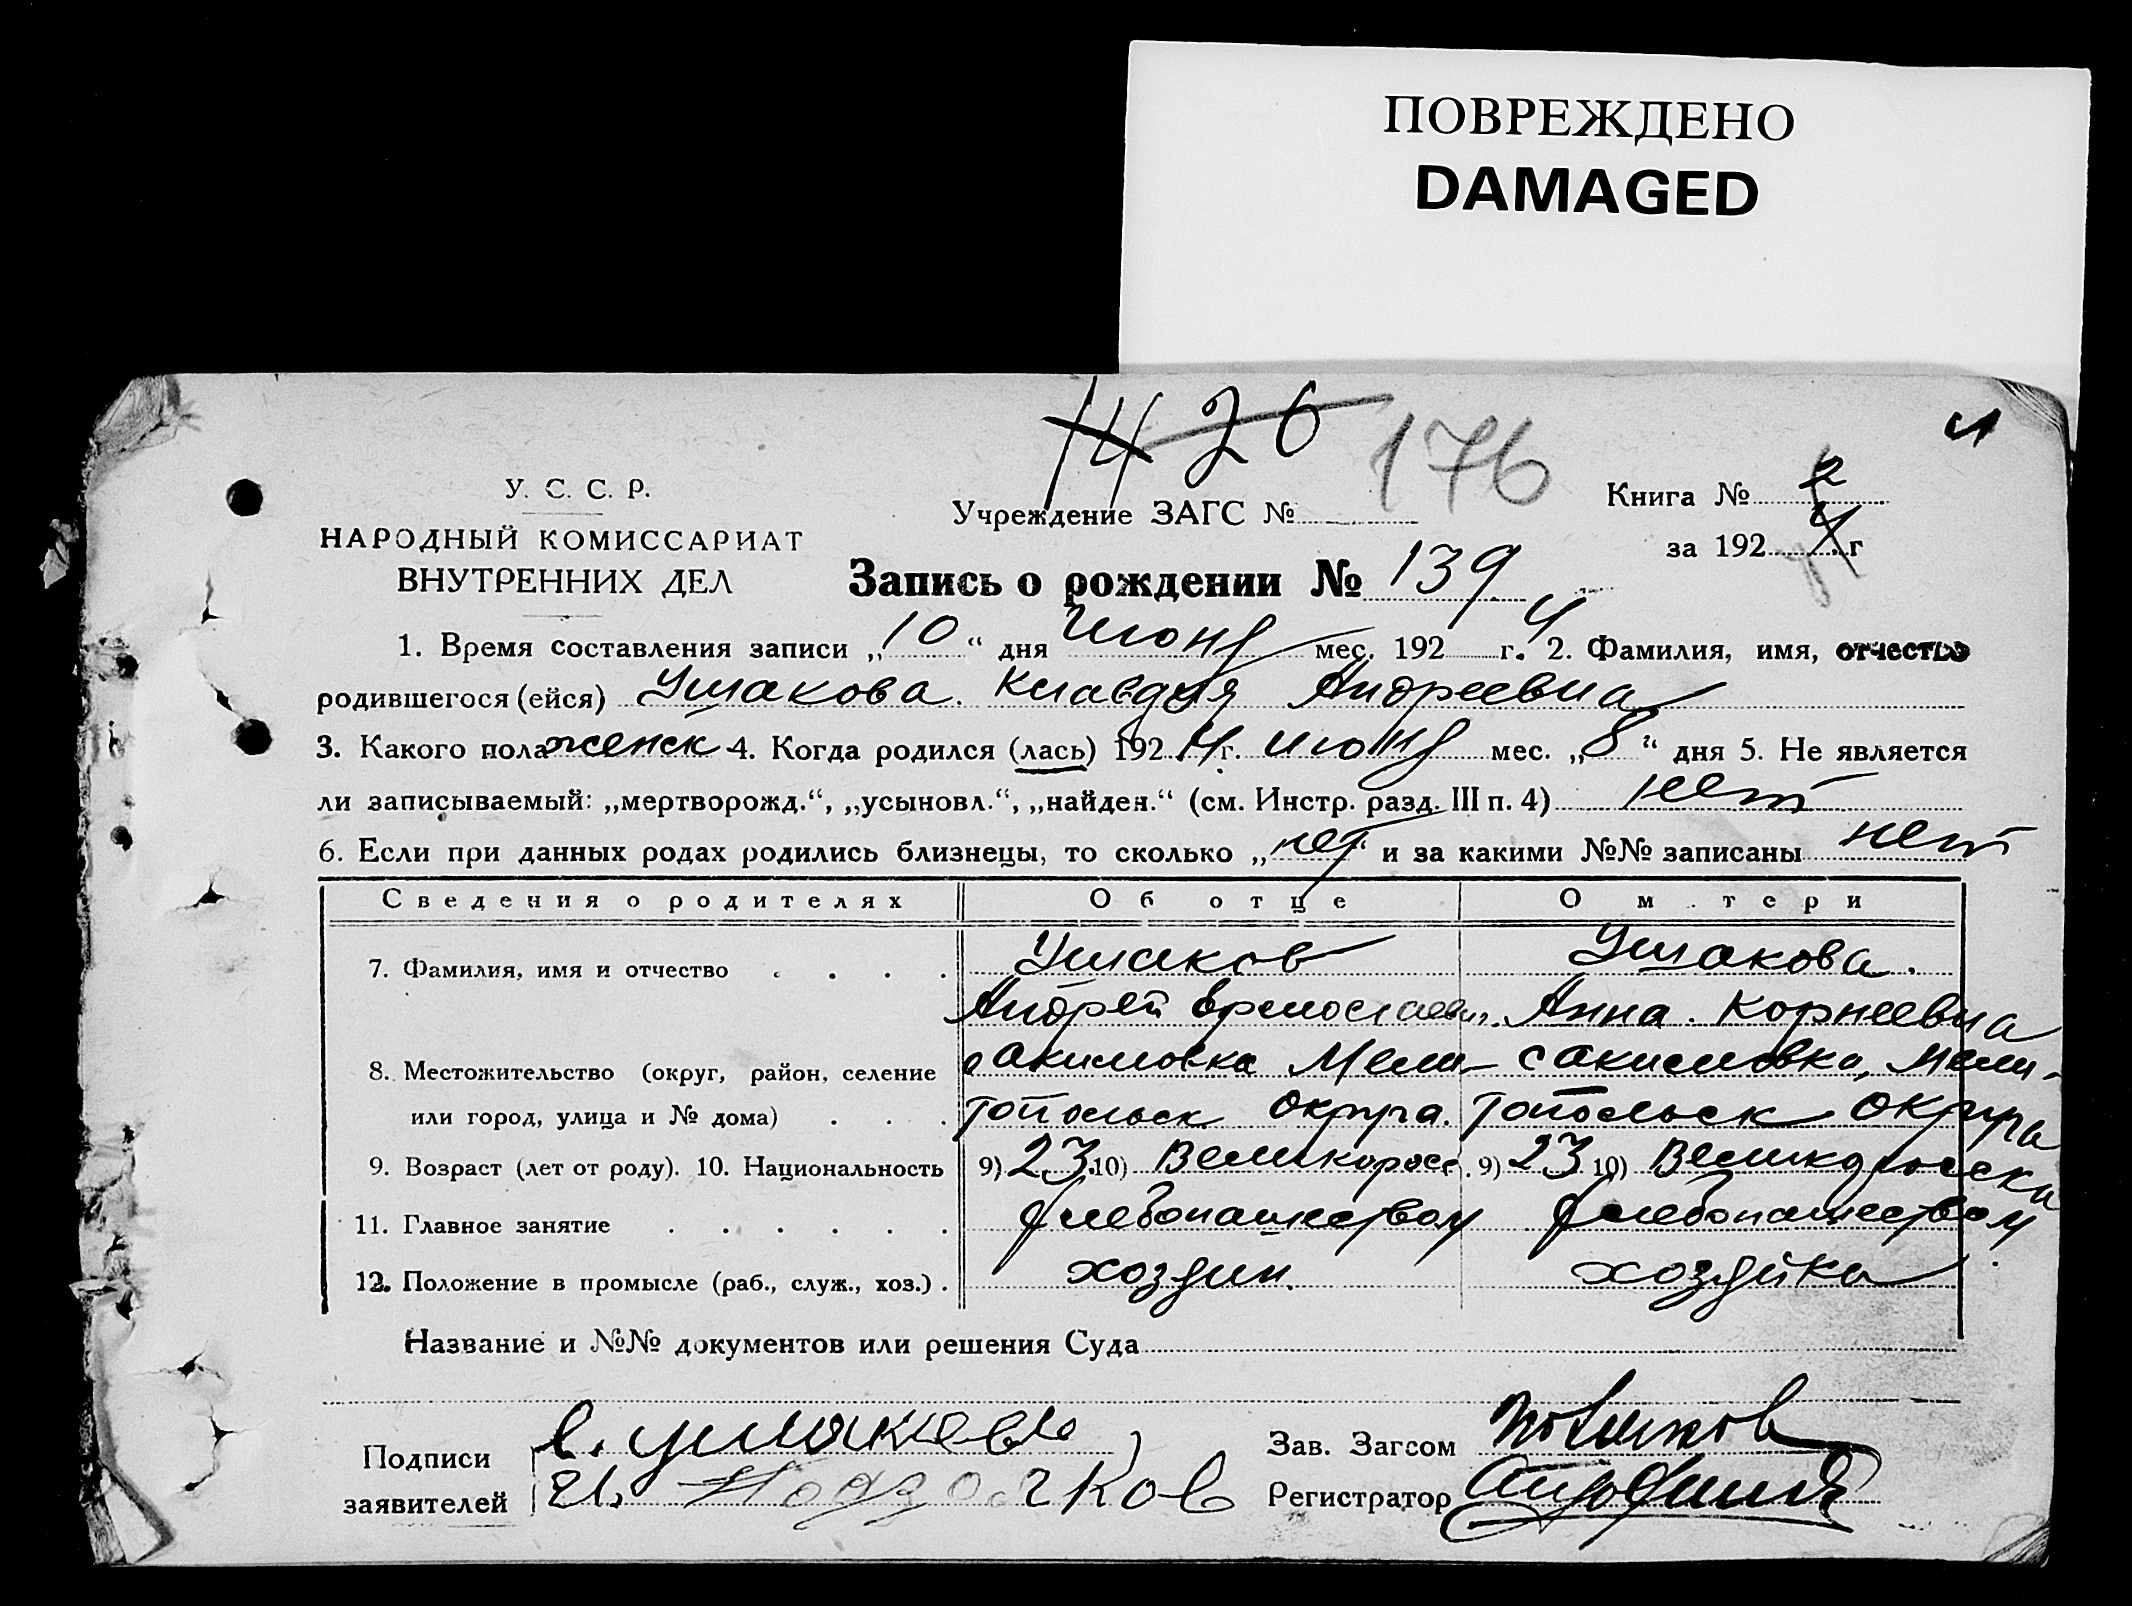 ПОВРЕЖДЕНО
DAMAGED
14 26 176
У. С. С. Р.
НАРОДНЫЙ КОМИССАРИАТ
ВНУТРЕННИХ ДЕЛ
Учреждение ЗАГС №
Книга № 2
за 192 4 г
Запись о рождении № 139
1. Время составления записи „10“ дня Июня мес. 192 4 г. 2. Фамилия, имя, отчество
родившегося (ейся) Ушакова. Клавдия Андреевна
3. Какого пола женск 4. Когда родился (лась) 192 4 г. июня мес. „8“ дня 5. Не является
ли записываемый: „мертворожд.“, „усыновл.“, „найден.“ (см. Инстр. разд. III п. 4) нет
6. Если при данных родах родились близнецы, то сколько „нет“ и за какими №№ записаны нет
Сведения о родителях Об отце О м.тери
7. Фамилия, имя и отчество Ушаков Ушакова.
Андрей Анна. Корнеевна
8. Местожительство (округ, район, селение с Акимовка Мели- с Акимовка, Мели-
или город, улица и № дома) топольск Округа. топольск Округа
9. Возраст (лет от роду). 10. Национальность 9) 23. 10) Великоросс. 9) 23 10) Великоросска
11. Главное занятие Хлебопашеством Хлебопашеством
12. Положение в промысле (раб., служ., хоз.) хозяин. хозяйка
Название и №№ документов или решения Суда
Подписи
заявителей
Зав. Загсом
Регистратор